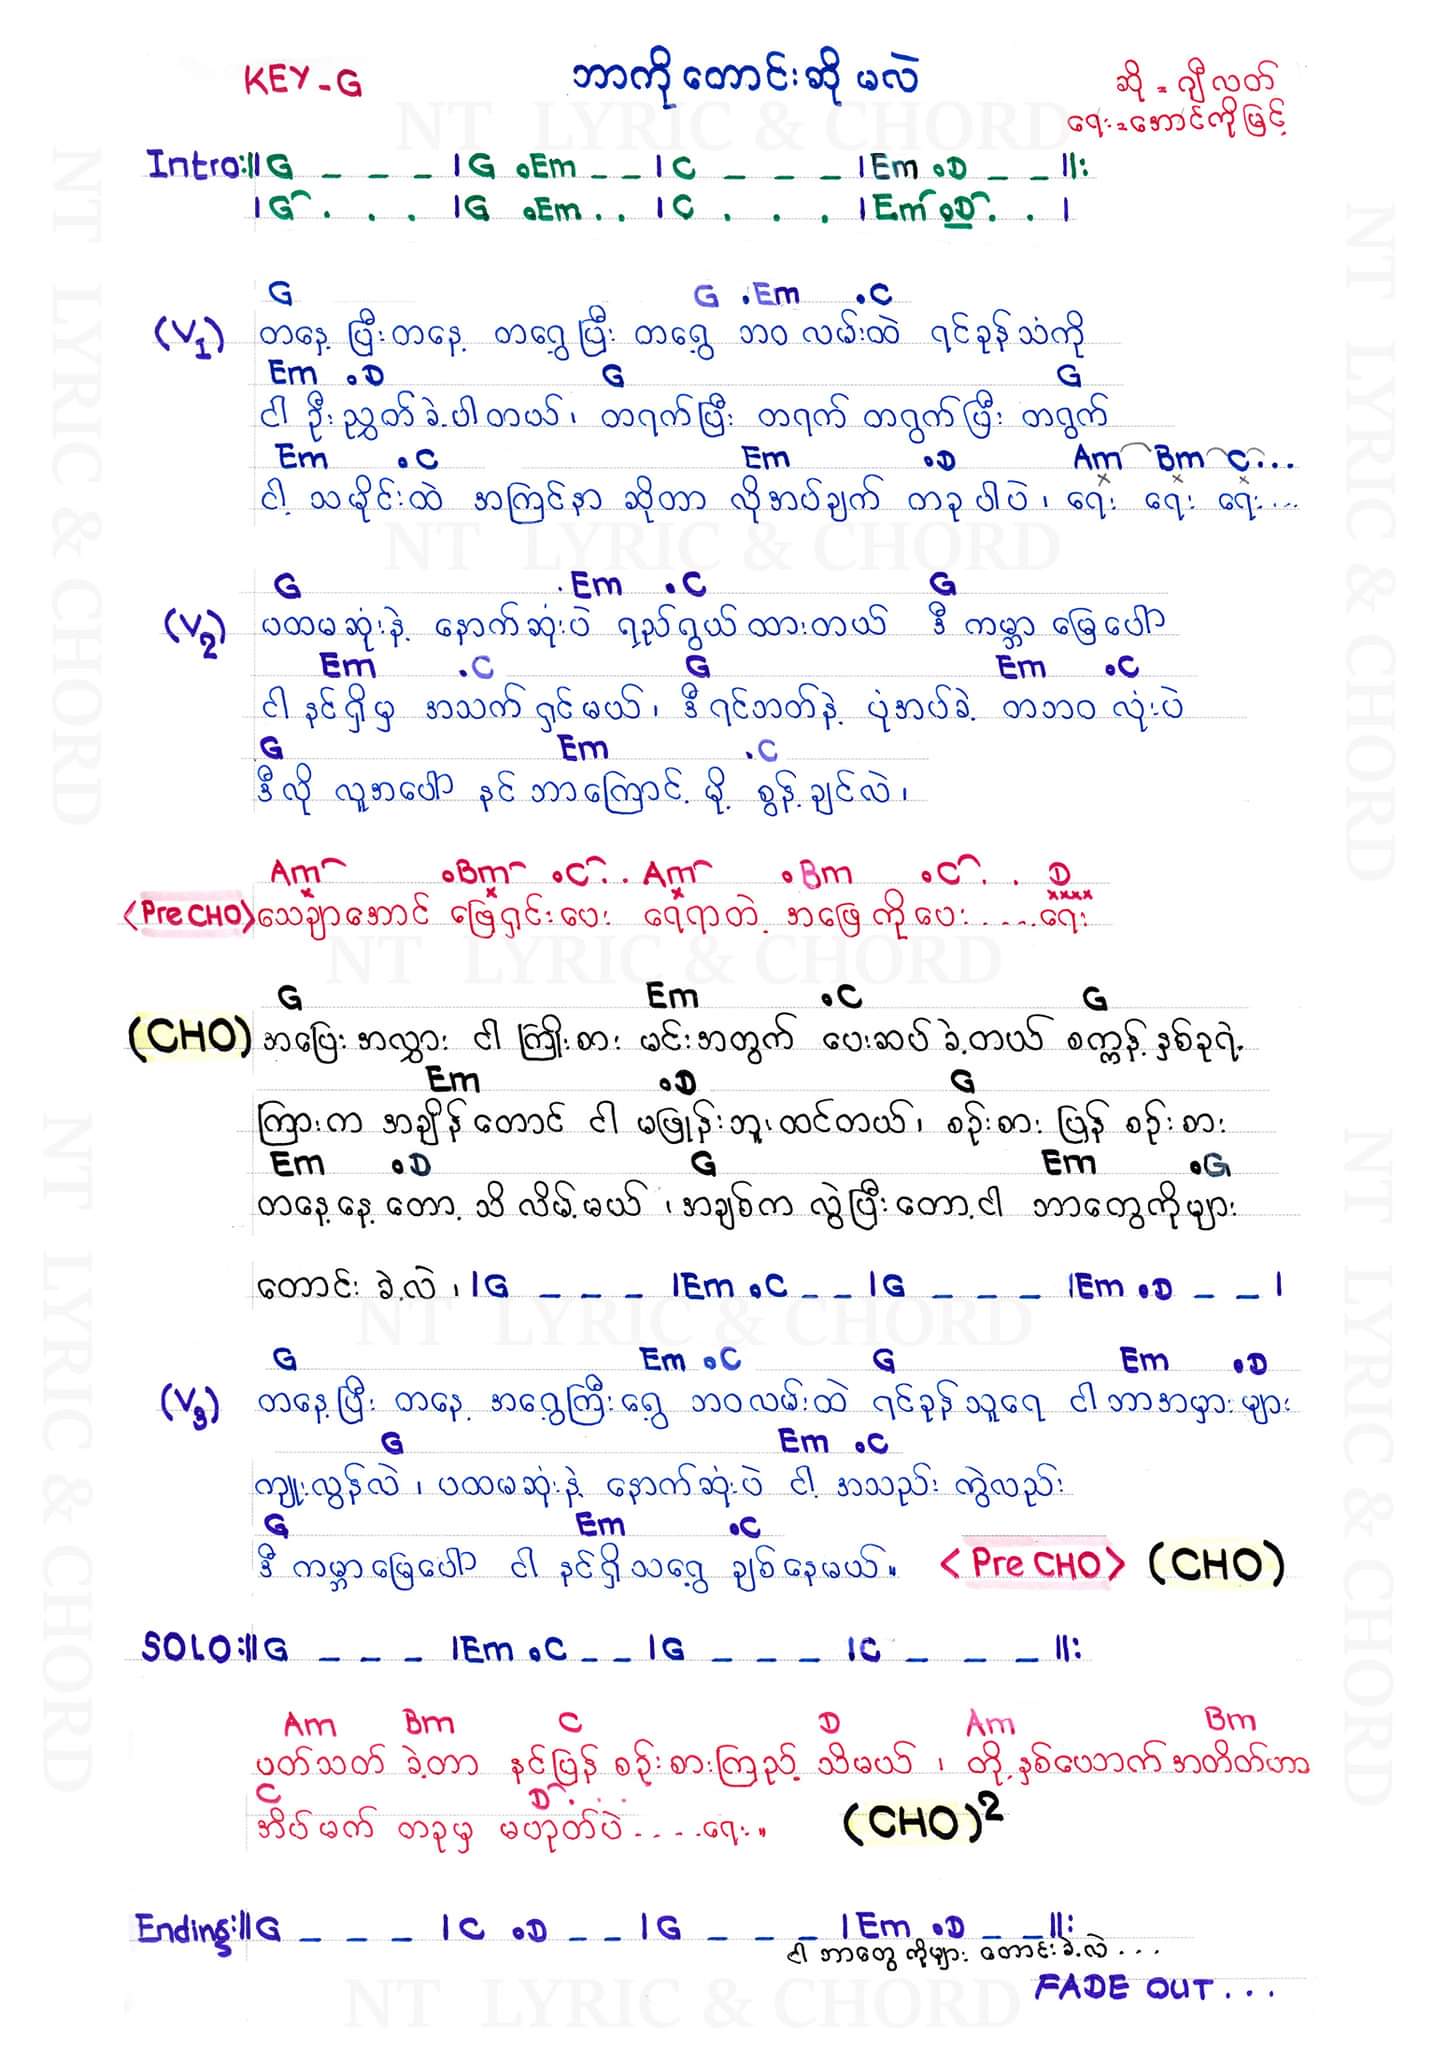 KEY-G ဘာကိုတောင်းဆိုမလဲ ဆို = ဂျီလတ်
ရေး = အောင်ကိုမြင့်
Intro:||G _ _ _ |G .Em _ _ |C _ _ _ |Em .D _ _ ||:
|G . . . |G .Em . . |C . . . |Em .D . . |
G G .Em .C
(V1) တနေ့ ပြီးတနေ့ တရွေ့ပြီး တရွေ့ ဘဝ လမ်းထဲ ရင်ခုန်သံကို
Em .D G G
ငါ ဦးညွှတ်ခဲ့ပါတယ်၊ တရက်ပြီး တရက် တရွက်ပြီး တရွက်
Em .C Em .D Am Bm C...
ငါ့ သမိုင်းထဲ အကြင်နာ ဆိုတာ လိုအပ်ချက် တခုပါပဲ၊ ရေး ရေး ရေး...
G .Em .C G
(V2) ပထမဆုံးနဲ့ နောက်ဆုံးပဲ ရည်ရွယ်ထားတယ် ဒီ ကမ္ဘာမြေပေါ်
Em .C G Em .C
ငါ နင်ရှိမှ အသက်ရှင်မယ်၊ ဒီရင်ဘတ်နဲ့ ပုံအပ်ခဲ့ တဘဝလုံးပဲ
G Em .C
ဒီလို လူအပေါ် နင် ဘာကြောင့် မို့ စွန့်ချင်လဲ၊
Am .Bm .C . . Am .Bm .C . . D
<Pre CHO> သေချာအောင် ဖြေရှင်းပေး ရေရာတဲ့ အဖြေကိုပေး ....ရေး
G Em .C G
(CHO) အပြေးအလွှား ငါ ကြိုးစား မင်းအတွက် ပေးဆပ်ခဲ့တယ် စက္ကန့် နှစ်ခုရဲ့
Em .D G
ကြားက အချိန်တောင် ငါ မဖြုန်းဘူးထင်တယ်၊ စဉ်းစား ပြန် စဉ်းစား
Em .D G Em .G
တနေ့နေ့ တော့ သိ လိမ့်မယ် ၊အချစ်က လွဲပြီးတော့ငါ ဘာတွေကိုများ
တောင်း ခဲ့လဲ ၊ |G _ _ _ |Em .C _ _ |G _ _ _ |Em .D _ _ |
G Em .C G Em .D
(V3) တနေ့ပြီး တနေ့ အရွေ့ကြီးရွေ့ ဘဝလမ်းထဲ ရင်ခုန်သူရေ ငါဘာအမှားများ
G Em .C
ကျူးလွန်လဲ ၊ ပထမဆုံးနဲ့ နောက်ဆုံးပဲ ငါ့ အသည်း ကွဲလည်း
G Em .C
ဒီ ကမ္ဘာမြေပေါ် ငါ နင်ရှိသရွေ့ ချစ်နေမယ်။ <Pre CHO> (CHO)
SOLO:||G _ _ _ |Em .C _ _ |G _ _ _ |C _ _ _ ||:
Am Bm C D Am Bm
ပတ်သတ် ခဲ့တာ နင်ပြန် စဉ်းစားကြည့် သိမယ် ၊ တို့နှစ်ယောက်အတိတ်ဟာ
C D . . .
အိပ်မက် တခုမှ မဟုတ်ပဲ ....ရေး။ (CHO)2
Ending:||G _ _ _ |C .D _ _ |G _ _ _ |Em .D _ _ ||:
ငါ ဘာတွေ ကိုများ တောင်းခဲ့လဲ ...
FADE OUT...
NT LYRIC & CHORD
NT LYRIC & CHORD
NT LYRIC & CHORD
NT LYRIC & CHORD
NT LYRIC & CHORD
NT LYRIC & CHORD
NT LYRIC & CHORD
NT LYRIC & CHORD
NT LYRIC & CHORD